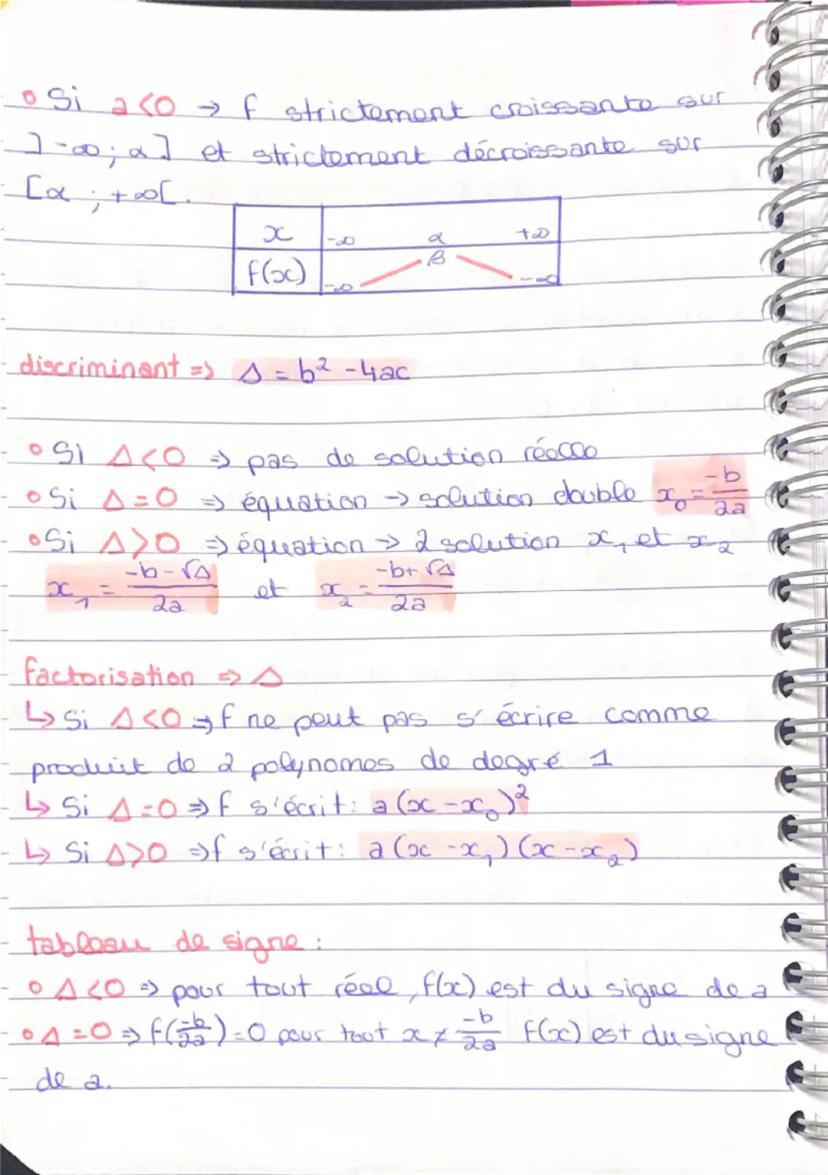 • Si a<0 → f strictement croissante sur
]-∞; α] et strictement décroissante sur
[α ; +∞[.
x -∞ α +∞
f(x) -∞ β -∞
discriminant => Δ = b² -4ac
• Si Δ<0 => pas de solution réelle
• Si Δ=0 => équation → solution double x₀ = -b/2a
• Si Δ>0 => équation → 2 solution x₁ et x₂
x₁ = (-b-√Δ)/2a et x₂ = (-b+√Δ)/2a
factorisation => Δ
↳ Si Δ<0 => f ne peut pas s'écrire comme
produit de 2 polynomes de degré 1
↳ Si Δ=0 => f s'écrit: a(x-x₀)²
↳ Si Δ>0 => f s'écrit: a(x-x₁)(x-x₂)
tableau de signe :
• Δ<0 => pour tout réel, f(x) est du signe de a
• Δ=0 => f(-b/2a)=0 pour tout x ≠ -b/2a f(x) est du signe
de a.